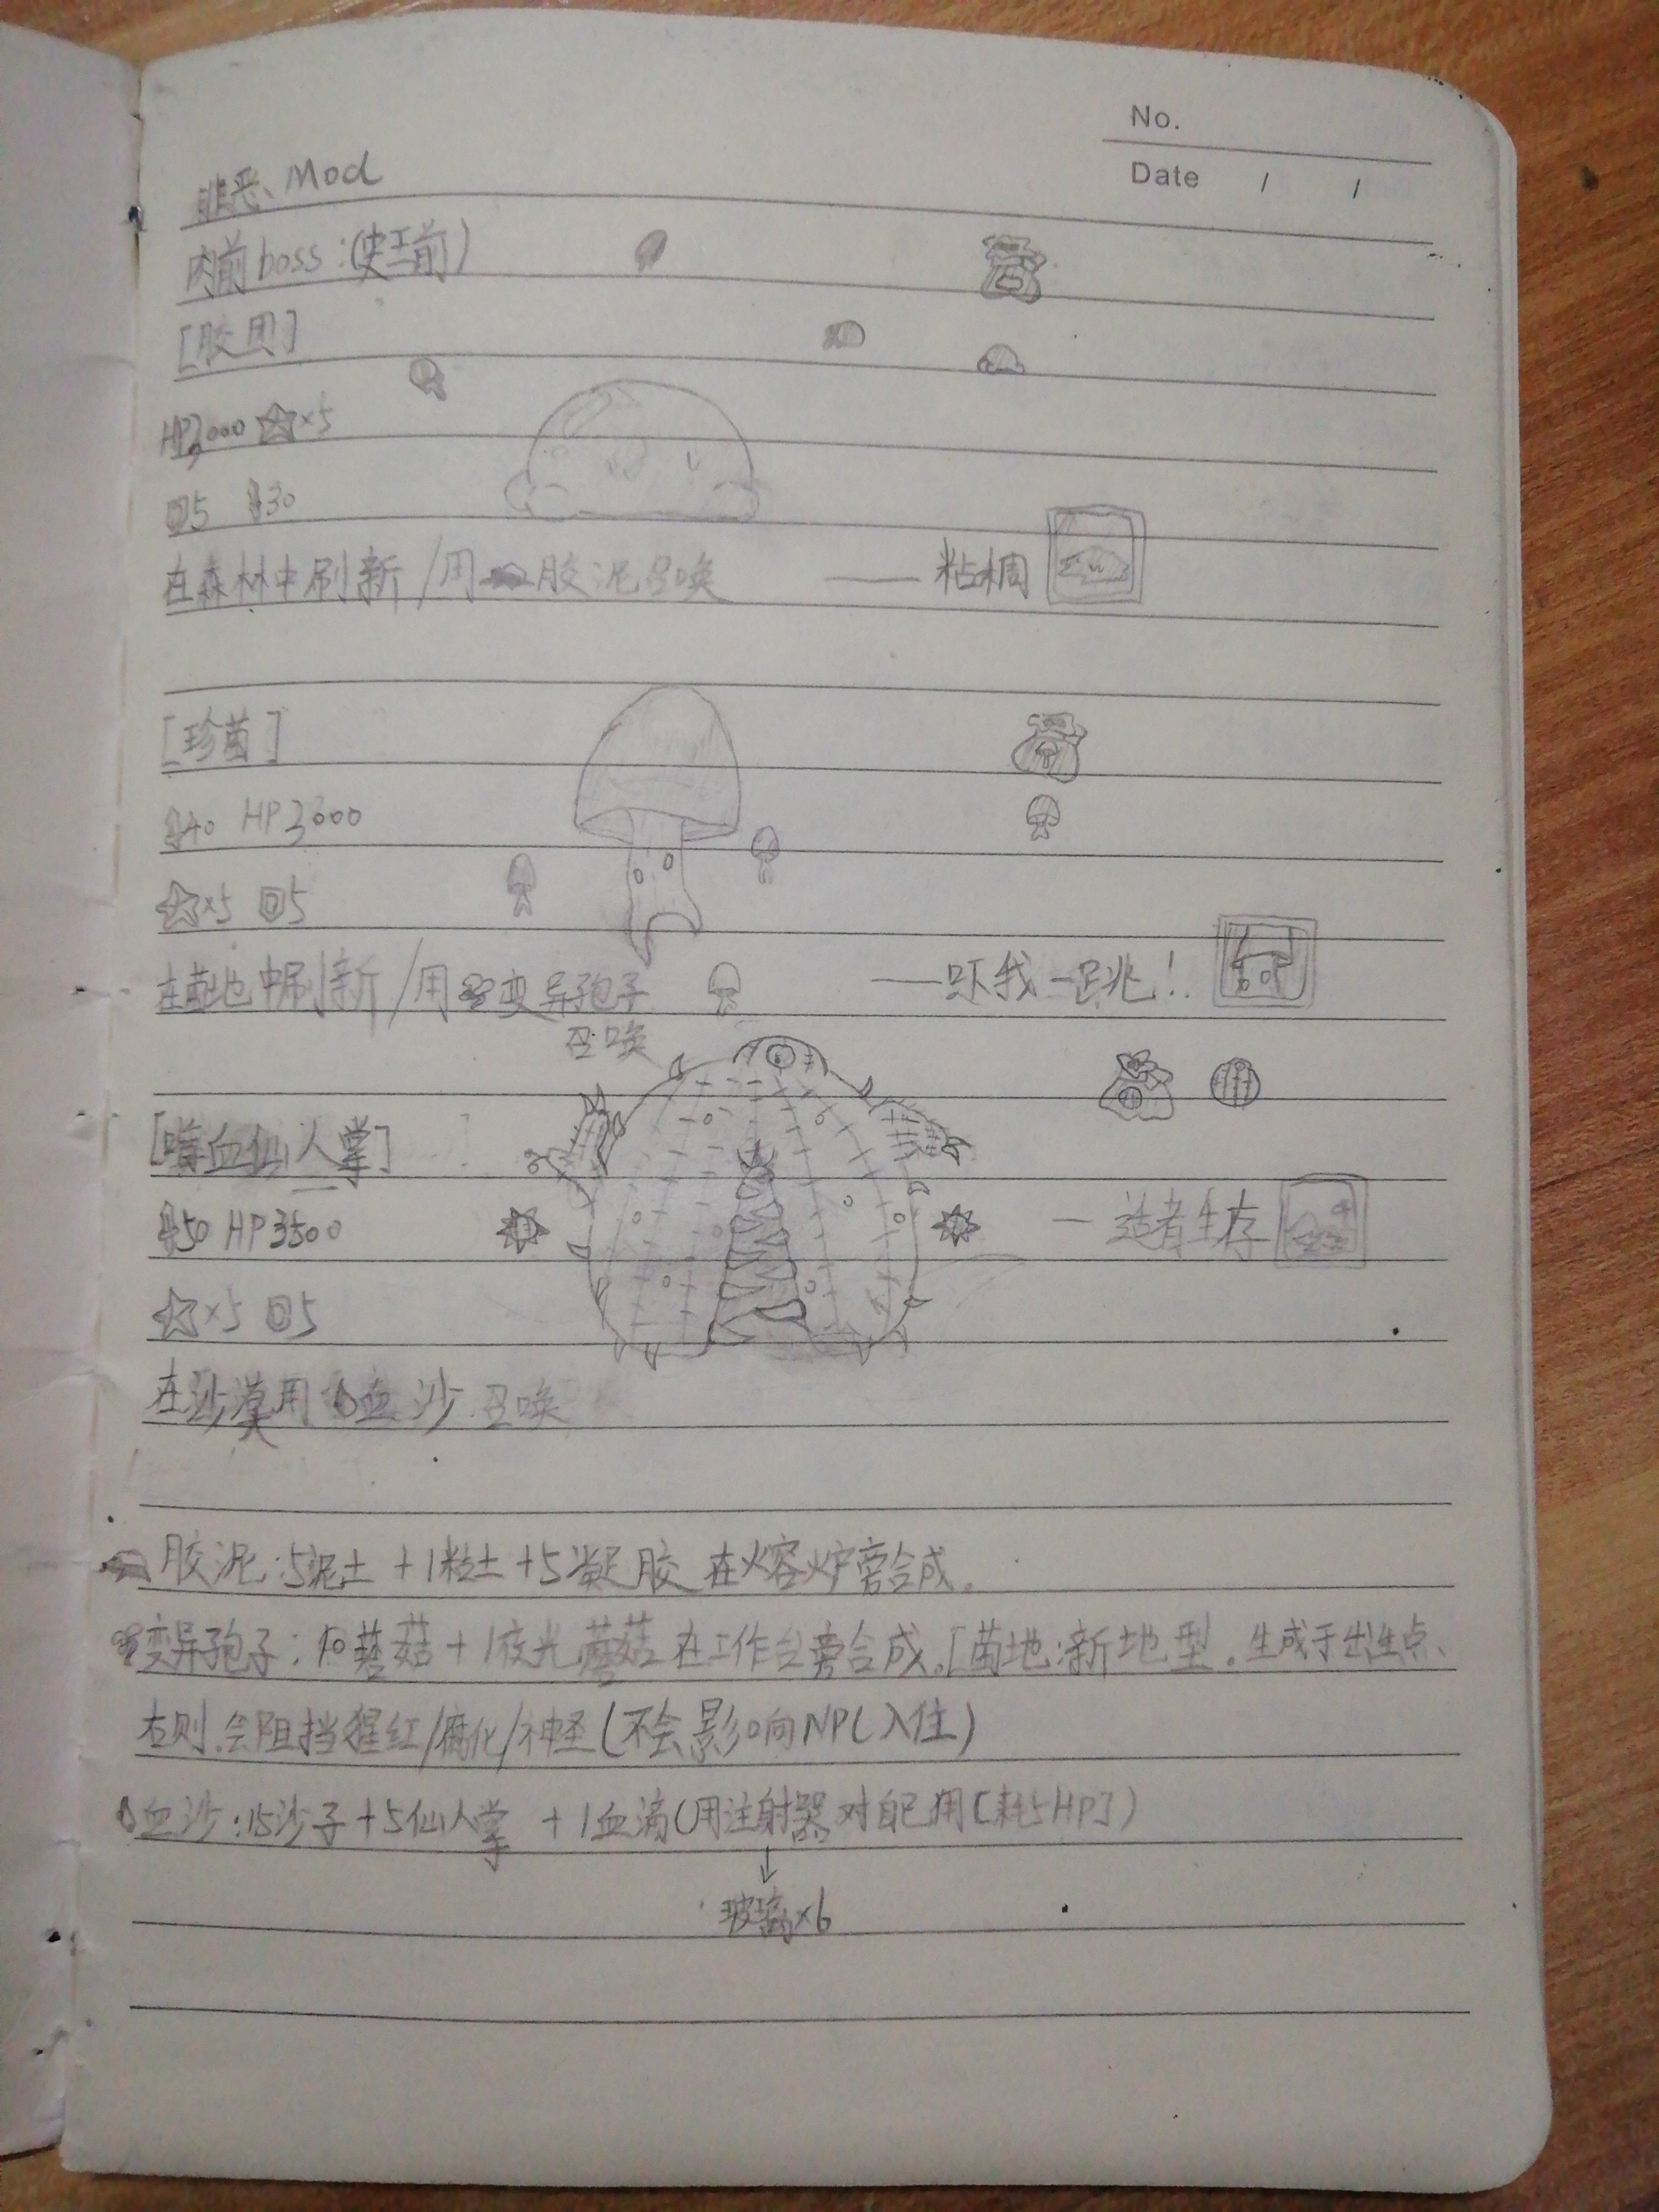 No.
Date / /
罪恶、Mod
肉前boss:(史王前)
[胶团]
HP2000 ☆×5
5 30
在森林中刷新/用胶泥召唤 ——粘稠
[珍菌]
40 HP3000
☆×5 5
在菌地中刷新/用变异孢子
召唤
——吓我一跳!
[嗜血仙人掌]
50 HP3500
—适者生存
☆×5 5
在沙漠用血沙召唤
胶泥:5泥土+1粘土+5凝胶 在熔炉旁合成。
变异孢子:10蘑菇+1夜光蘑菇在工作台旁合成。[菌地:新地型.生成于出生点、
右则.会阻挡猩红/腐化/神圣(不会影响NPC入住)
血沙:15沙子+5仙人掌+1血滴(用注射器对自己用[耗5HP])
↓
玻璃×6